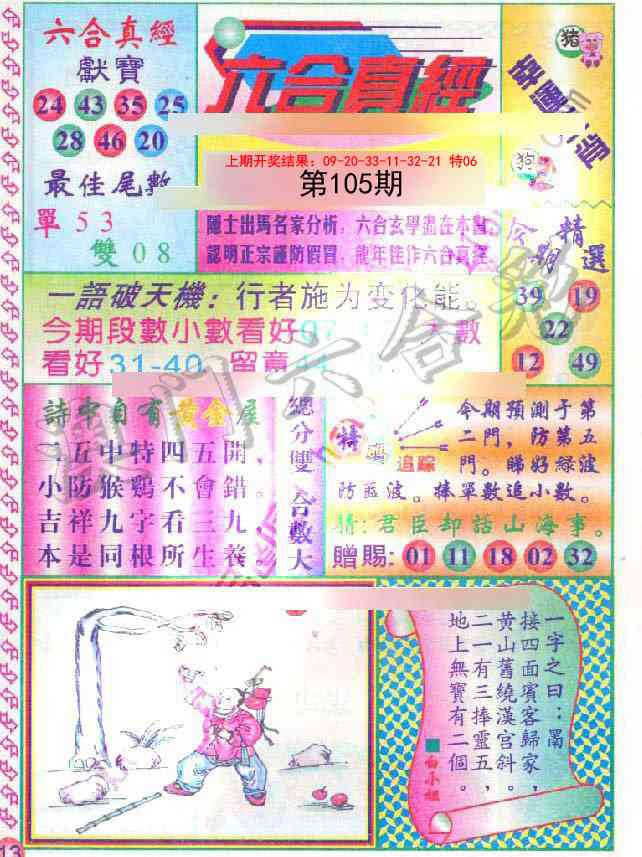 六合真經
獻寶
24 43 35 25
28 46 20
最佳尾數
單 5 3
雙 0 8
六合真經
上期开奖结果：09-20-33-11-32-21 特06
第105期
猪
狗
隱士出馬名家分析，六合玄學盡在本書
認明正宗謹防假冒，龍年佳作六合真經
今期
精選
39 19
22
12 49
一語破天機：行者施为变化能。
今期段數小數看好07 大數
看好31-40 留意44
詩中自有黃金屋
二五中特四五開、
小防猴鷄不會錯。
吉祥九字看三九、
本是同根所生養。
總分雙 合數大
特
追踪
今期預測于第
二門，防第五
門。睇好綠波
防蓝波。捧單數追小數。
猜:君臣却話山海事。
贈賜: 01 11 18 02 32
一字之曰：罱
接四面賓客歸家，
黃山舊繞漢宮斜，
二一有三捧靈五，
地上無寶有二個。
白小姐
澳门六合
13